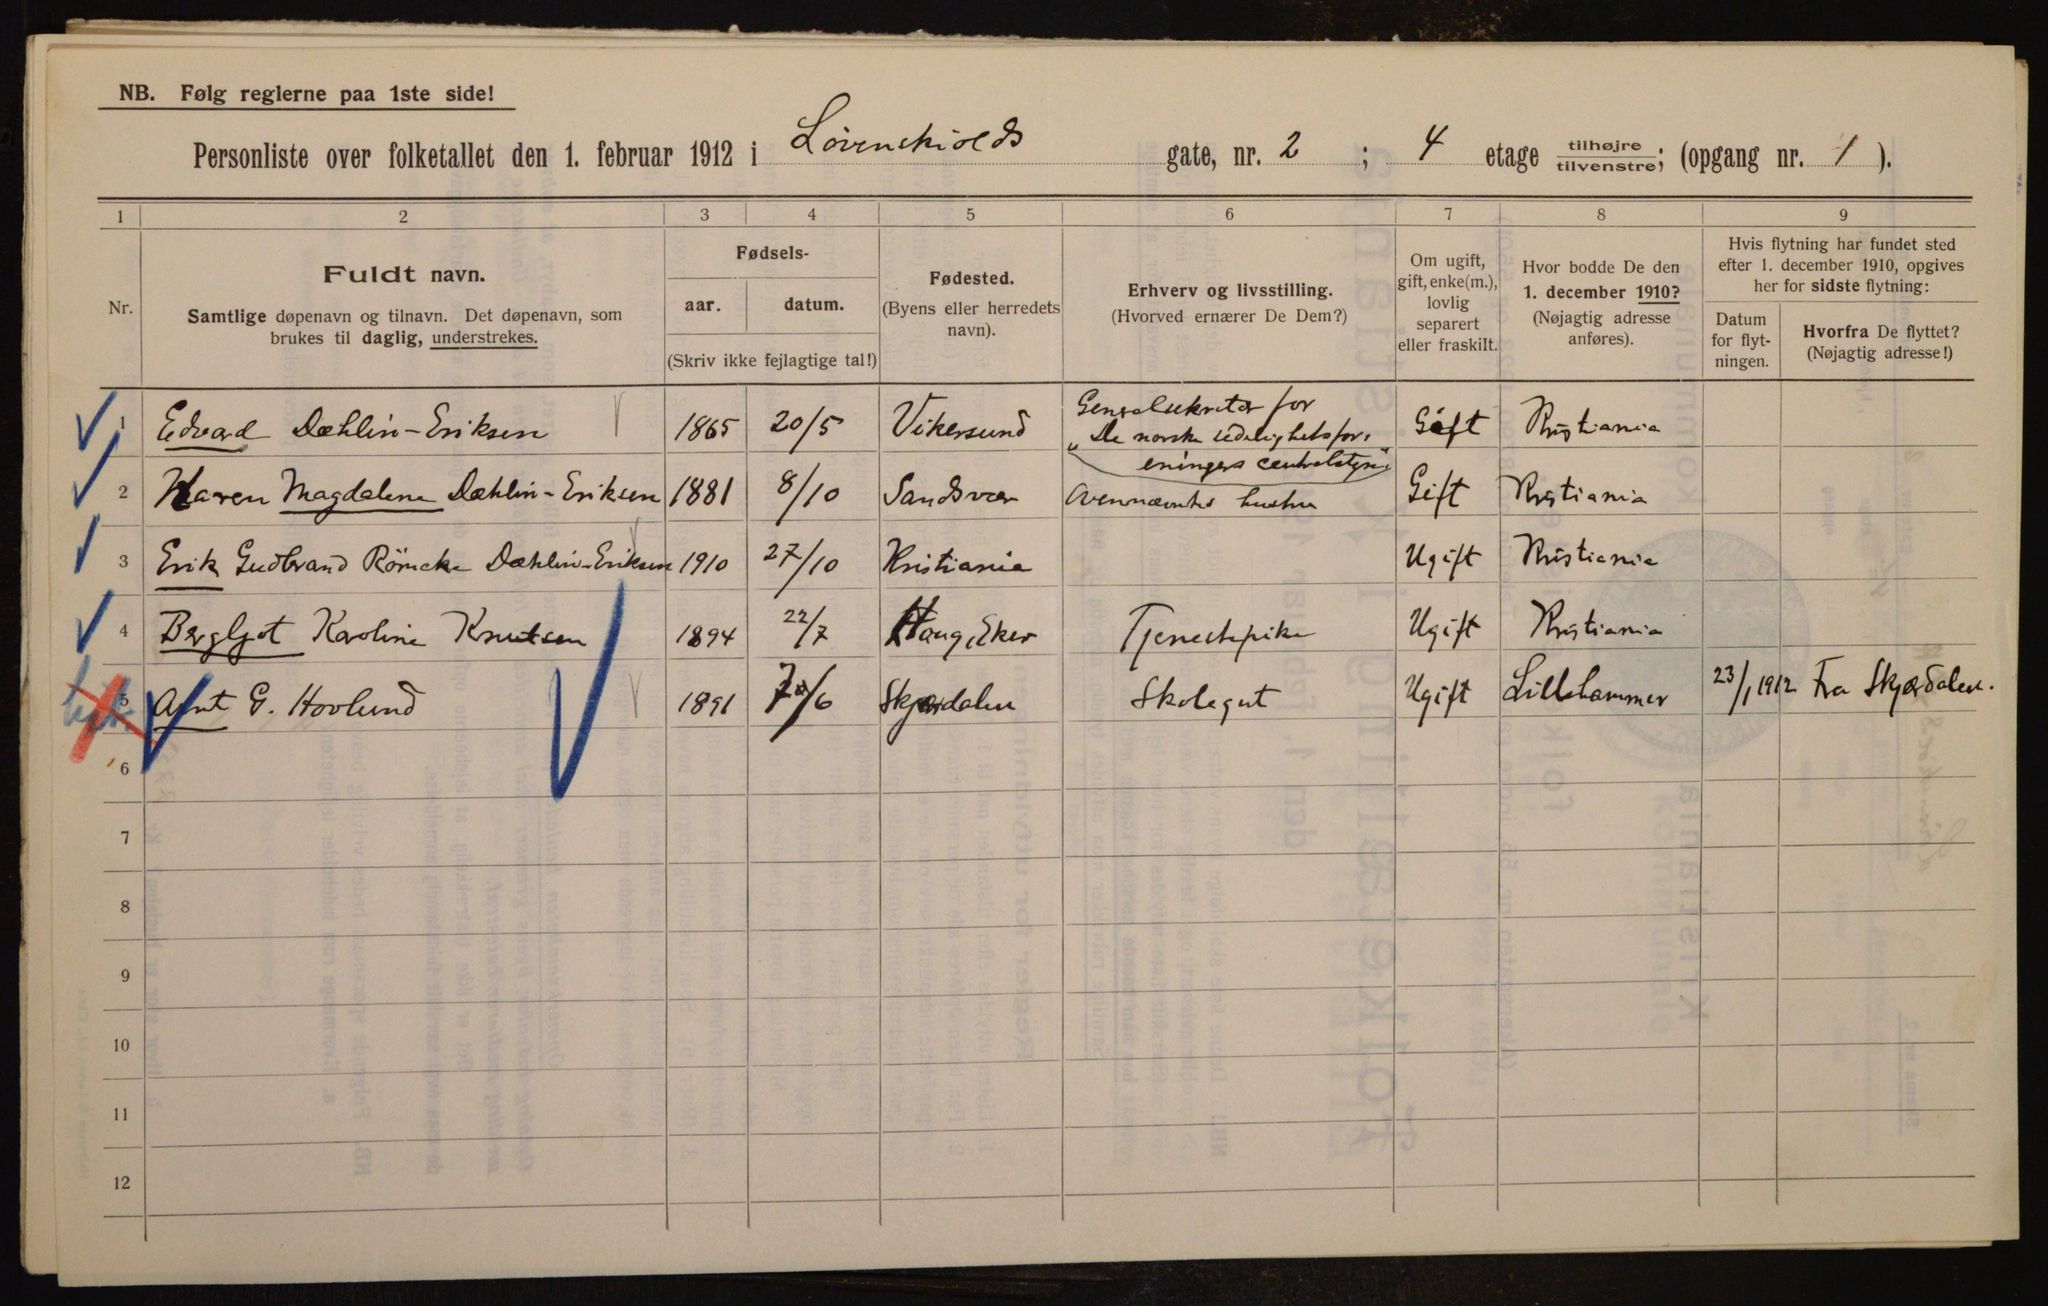 NB. Følg reglerne paa 1ste side!
Personliste over folketallet den 1. februar 1912 i Løvenskiolds gate, nr. 2 ; 4 etage tilhøjre tilvenstre; (opgang nr. 1 ).
1 2 3 4 5 6 7 8 9
Nr.
Fuldt navn.
Samtlige døpenavn og tilnavn. Det døpenavn, som
brukes til daglig, understrekes.
Fødsels-
aar. datum.
(Skriv ikke fejlagtige tal!)
Fødested.
(Byens eller herredets
navn).
Erhverv og livsstilling.
(Hvorved ernærer De Dem?)
Om ugift,
gift, enke(m.),
lovlig
separert
eller fraskilt.
Hvor bodde De den
1. december 1910?
(Nøjagtig adresse
anføres).
Hvis flytning har fundet sted
efter 1. december 1910, opgives
her for sidste flytning:
Datum
for flyt-
ningen.
Hvorfra De flyttet?
(Nøjagtig adresse!)
1 Edvard Dæhlin-Eriksen 1865 20/5 Vikersund Generalsekretær for
"De norske sedelighetsfor-
eningers centralstyre" Gift Kristiania
2 Karen Magdalena Dæhlin-Eriksen 1881 8/10 Sandsvær Ovennævntes hustru Gift Kristiania
3 Erik Gudbrand Dæhlin-Eriksen 1910 27/10 Kristiania Ugift Kristiania
4 Bergljot Karoline Knutsen 1894 22/7 Haug, Eker Tjenestepike Ugift Kristiania
5 Arnt G. Hovlund 1891 /6 Skjærdalen Skolegut Ugift Lillehammer 23/1 1912 Fra Skjærdalen.
6
7
8
9
10
11
12